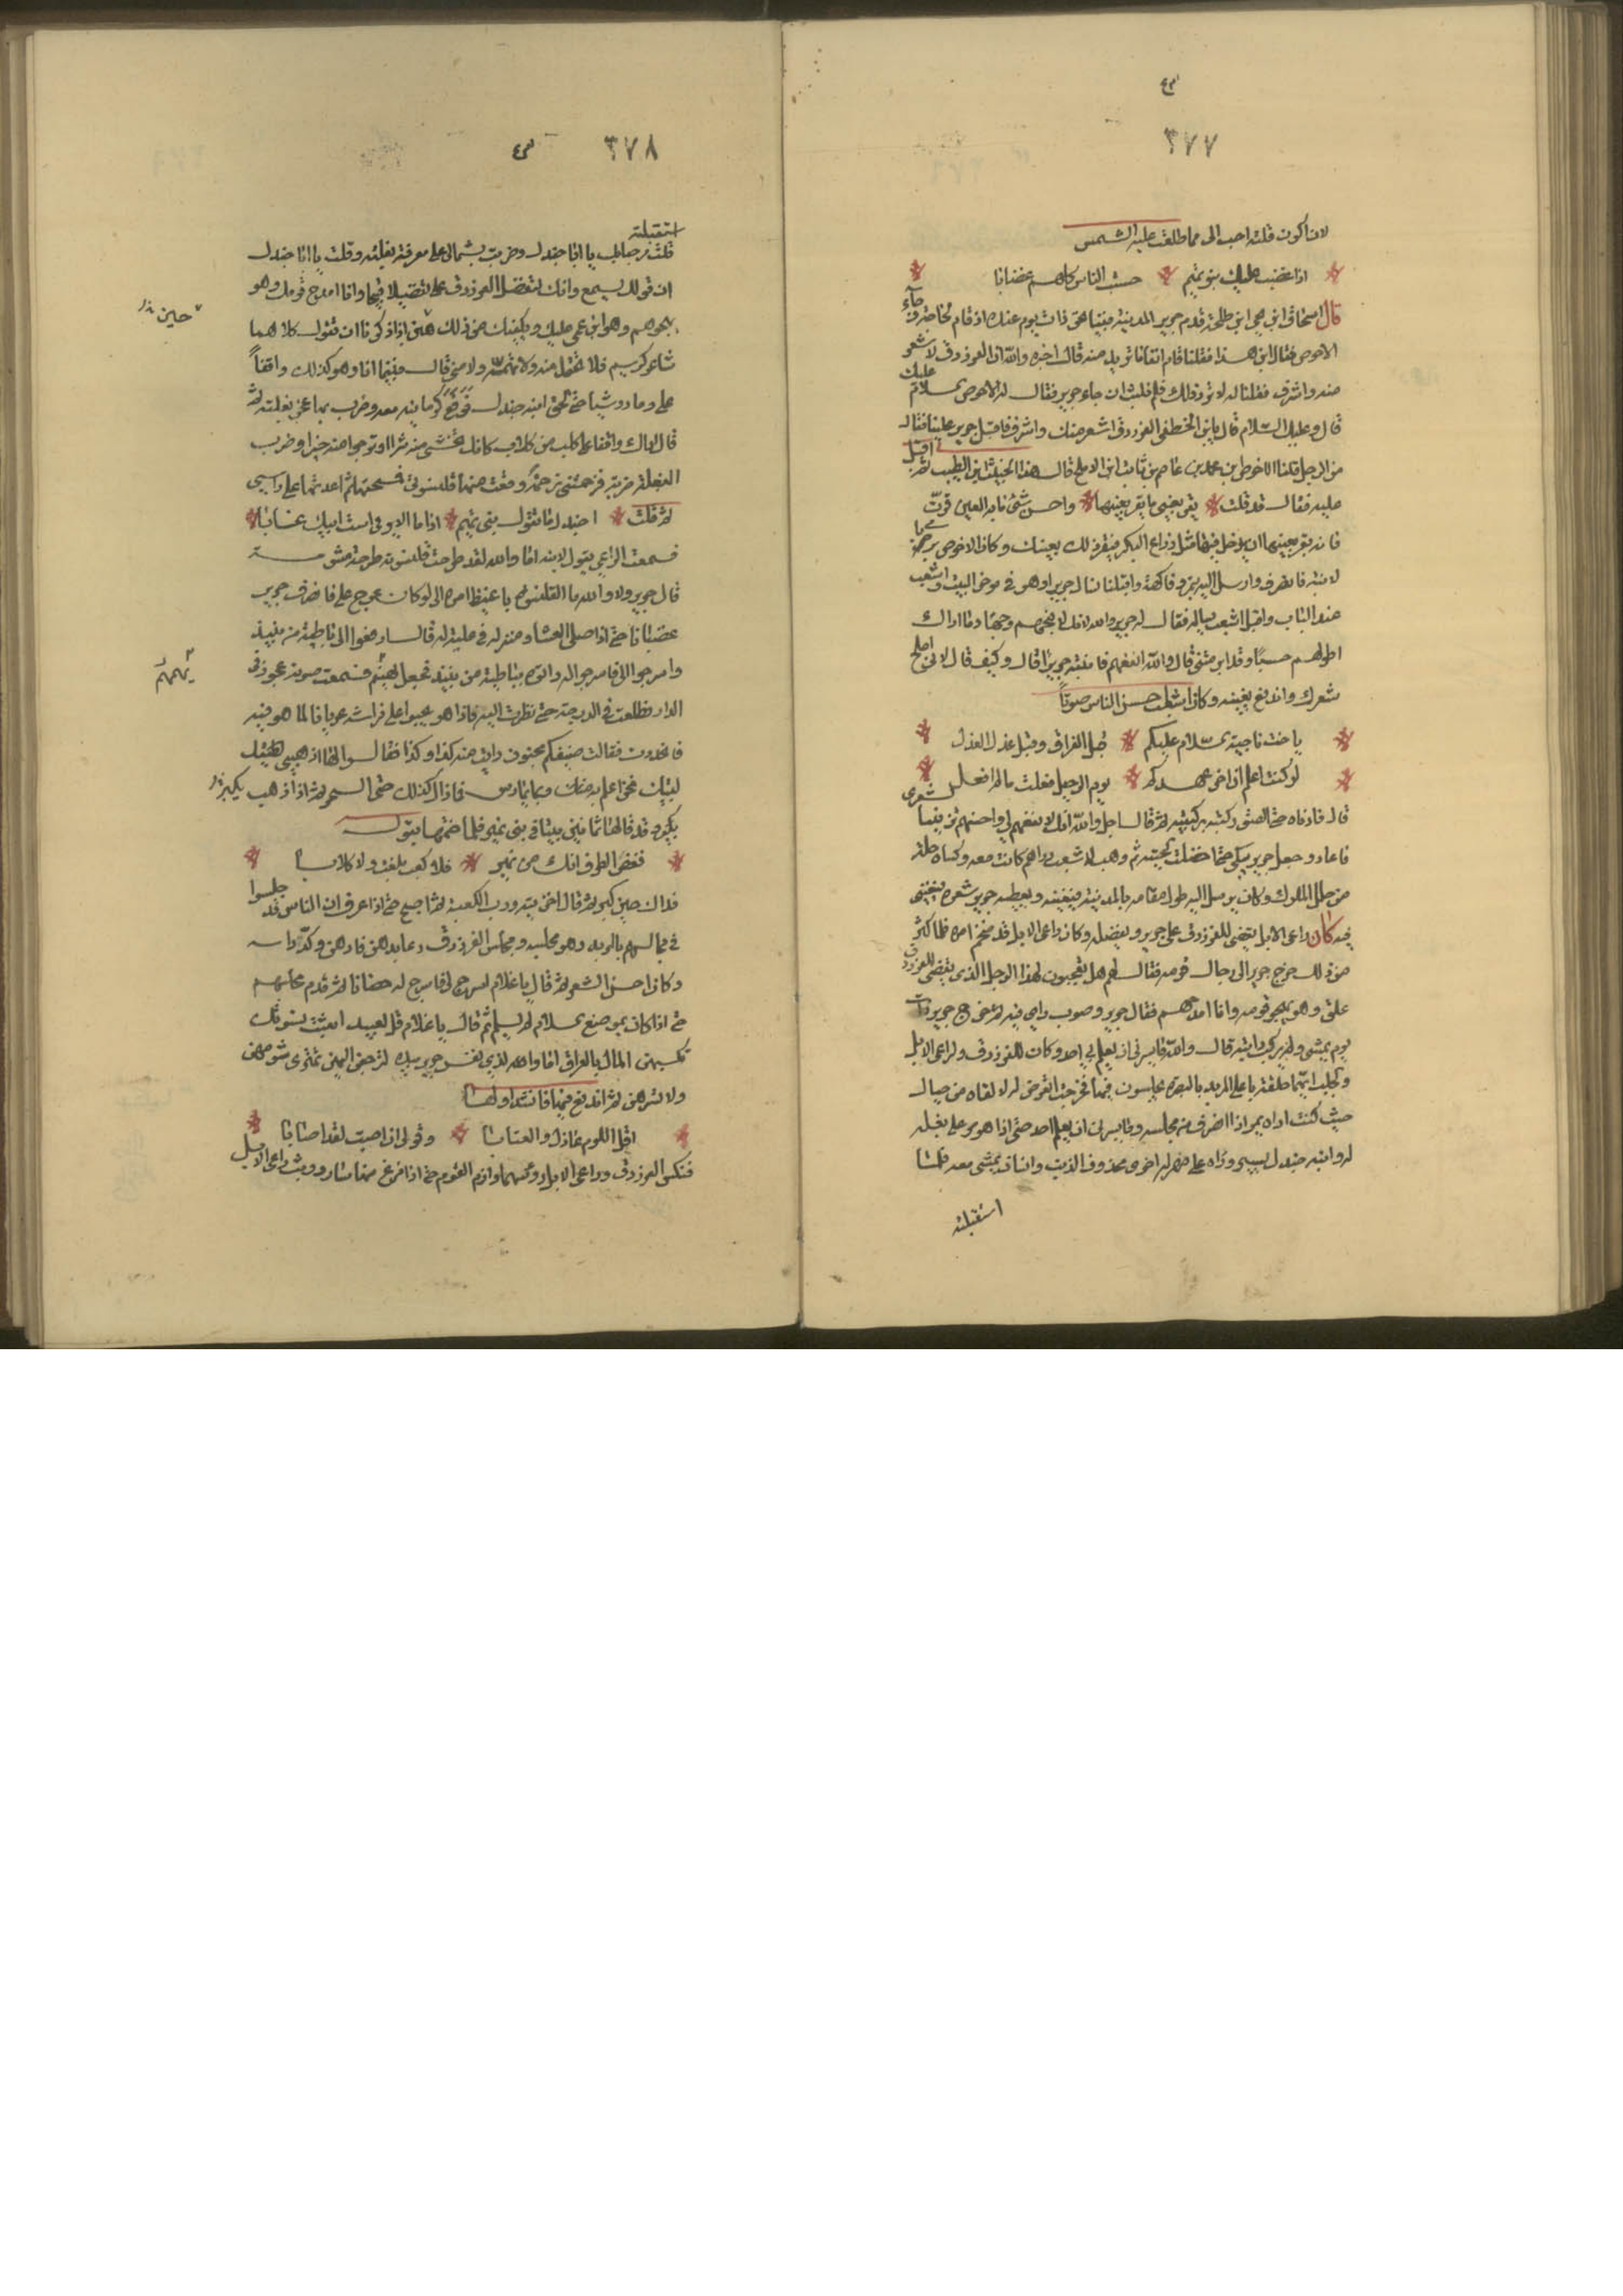 ٣٧٧
لان اكون قلته احب الى مما طلعت عليه الشمس
اذا غضبت عليك بنو تميم حسبت الناس كلهم غضابا
قال اسحاق ابن يحيى ابن طلحة قدم جرير المدينة فبينا هو ذات يوم عندنا اذ قام لحاجة وجآء
الاحوص فقال اين هذا فقلنا قام انفا ما تريد منه قال اخزه والله ان الفرزدق لاشعر
منه واشرف فقلنا له لا ترد ذلك فلم نلبث ان جاء جرير فقال له الاحوص سلام عليك
قال وعليك السلام قال يا ابن الخطفى الفرزدق اشعر منك واشرف فاقبل جرير علينا فقال
من الرجل قلنا الاحوص بن محمد بن عاصم بن ثابت ابن الافلح قال هذا الخبيث ابن الطيب ثم اقبل
عليه فقال قد قلت يقر بعيني ما يقر بعينها واحسن شئ ما به العين قرت
فانه يقر بعينها ان يدخل فيها مثل ذراع البكر فيقر ذلك بعينك وكان الاحوص يرمى
لابنه فانصرف وارسل اليه بتمر وفاكهة واقبلنا نسال جرير او هو في موخر البيت واشعب
عند الباب واقبل اشعب يساله فقال له جرير والله انك لاقبحهم وجها وما اراك
اطولهم حسبا وقد ابرمتني قال والله انفعهم فانتبه جرير قال وكيف قال لاني املح
شعرك واندفع يغنيه وكان اشعب احسن الناس صوتاً
يا اخت ناجية سلام عليكم قبل الفراق وقبل عذل العذل
لو كنت اعلم ان اخر عهدكم يوم الرحيل فعلت ما لم افعل
قال فادناه حتى الصق ركبته بركبته ثم قال اجل والله انك لانفعهم لي واحسنهم تزيينا لشعري
فاعاد وجعل جرير يبكي حتى اخضلت لحيته ثم وهب لاشعب دراهم كانت معه وكساه حلة
من حلل الملوك وكان يرسل اليه طول مقامه بالمدينة فيغنيه ويعطيه جرير شعره يغني
فيه كان راعي الابل يقضي للفرزدق على جرير ويفضله وكان راعي الابل قد ضخم امره فلما اكثر
من ذلك خرج جرير الى رجال قومه فقال لهم هل تعجبون لهذا الرجل الذي يقضي للفرزدق
على وهو يهجو قومه وانا امدحهم فقال جرير وضرب راي فيه ثم خرج جرير ذات
يوم يمشي ولم يركب دابته قال والله ما يسرني ان يعلم بي احد وكان للفرزدق ولراعي الابل
وجلسائهما حلقة باعلى المربد بالبصرة يجلسون فيها فخرجت اتعرض له لالقاه من حيال
حيث كنت اراه يمر اذا انصرف من مجلسه وما يسرني ان يعلم احد حتى اذا هو مر على بغلة
له وابنه جندل يسير وراه على مهر له اخرى محذوف الذنب وانسان يمشي معه فلما
استقبلته
٣٧٨
استقبلته
قلت مرحبا بك يا ابا جندل وضربت بشمالي على معرفة بغلته وقلت يا ابا جندل
ان قولك يسمع وانك تفضل الفرزدق علي تفضيلا قبيحا وانا امدح قومك وهو
يهجوهم وهو ابن عمي عليك ويكفيك من ذلك هين اذا ذكرنا ان تقول كلاهما
حين
شاعر كريم فلا تحتمل منه ولا مني قال فبينما انا وهو كذلك واقفاً
علي وما رد شيا حتى لحق ابنه جندل فرفع كرمانية معه وضرب بها عجز بغلته ثم
قال اراك واقفا على كلب من كليب كانك تخشى منه شرا او ترجوا منه خيرا وضرب
البغلة ضربة فرمحتني رمحة وقعت منها قلنسوتي فمسحتها ثم اعدتها على راسي
ثم قلت اجندل ما تقول بنو نمير اذا ما الاير في است ابيك غابا
فسمعت الراعي يقول لابنه اما والله لقد طرحت قلنسوته طرحة مشومة
قال جرير ولا والله ما القلنسوة باغيظ امره الي لو كان عرج علي فانصرف جرير
غضبانا حتى اذا صلى العشا ومنزله في علية له قال ارفعوا الى باطية من نبيذ
واسرجوا لي فاسرجوا له واتوه بباطية من نبيذ فجعل يهينم فسمعت صوته عجوز في
يهمهم
الدار فطلعت في الدرجة حتى نظرت اليه فاذا هو يحبو على فراشه عريانا لما هو فيه
فانحدرت فقالت ضيفكم مجنون رايت منه كذا وكذا فقالوا لها اذهبي لطيتك
نحن اعلم به منك وبما يمارس فما زال كذلك حتى السحر ثم اذا هو يكبر
يكبر وقد قالها ثمانين بيتا في بني نمير فلما ختمها بقوله
فغض الطرف انك من نمير فلا كعب بلغت ولا كلابا
فذاك حين كبر ثم قال اخزيته ورب الكعبة ثم اصبح حتى اذا عرف ان الناس قد جلسوا
في مجالسهم بالمربد وهو مجلسه ومجلس الفرزدق دعا بدهن فادهن وكف راسه
وكان احسن الشعر ثم قال يا غلام اسرج لي فاسرج له حصانا ثم قدم مجلسهم
حتى اذا كان بموضع سلام لم يسلم ثم قال يا غلام قل لعبيد ابعثتك نسوتك
تكسبهن المال بالعراق اما والله الذي نفس جرير بيده لترجعن اليهن بميرى يسوهن
ولا يسرهن ثم اندفع فيها فانشد اولها
اقلى اللوم عاذل والعتابا وقولى ان اصبت لقد اصابا
فنكس الفرزدق وراعي الابل رؤسهما وارم القوم حتى اذا فرغ منها سار ووثب راعي الابل